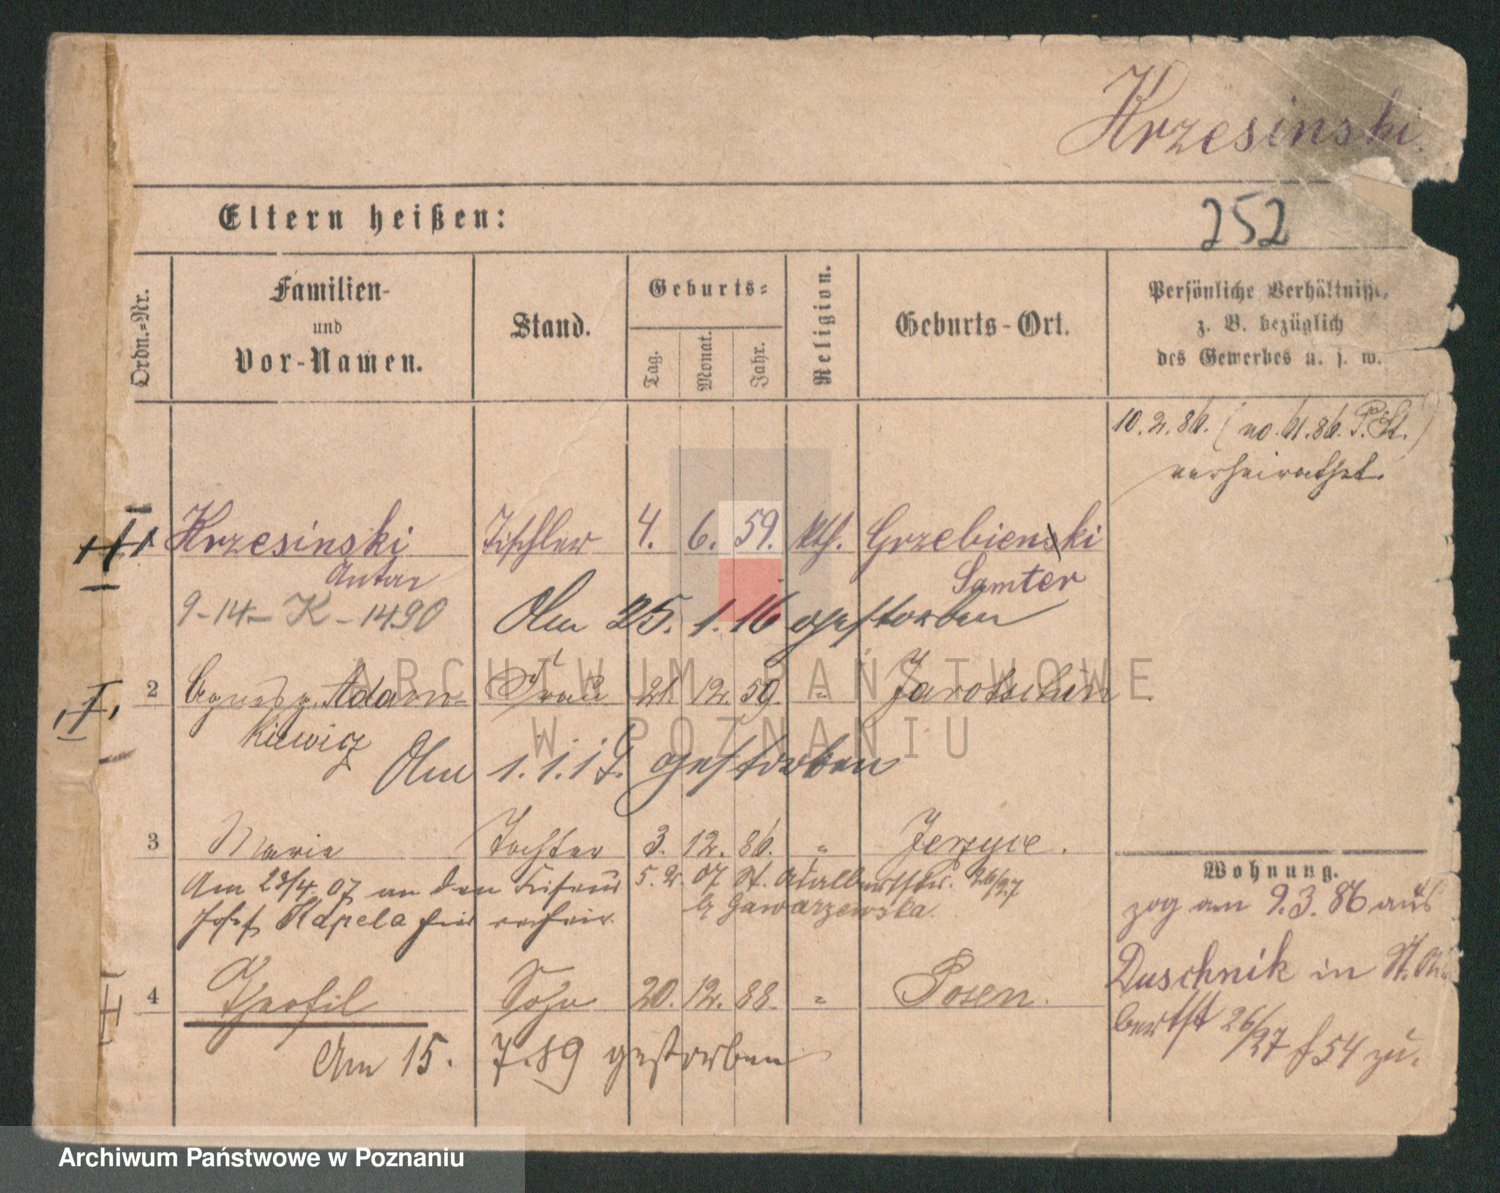 Krzesinski.
Eltern heißen:
252
Ordn.=Nr.
Familien-
und
Vor-Namen.
Stand.
Geburts=
Tag.
Monat.
Jahr.
Religion.
Geburts-Ort.
Persönliche Verhältnisse,
z. B. bezüglich
des Gewerbes u. s. w.
10.2.86. (no. 61.86. P. St.)
verheirathet.
1 Krzesinski Tischler 4. 6. 59. kth. Grzebienski
Anton Samter
9-14-K-1490 Am 25.1.16 gestorben
ARCHIWUM PAŃSTWOWE
W POZNANIU
2 Agnes g. Adam= Frau 21. 12. 59. " Jarotschin
kiewicz
Am 1.1.19. gestorben
3 Marie Tochter 3. 12. 86. " Jerzyce.
Am 23/4.07 an den Friseur 5.2.07 St. Adalbertstr. 26/27
Josef Kapela hier verheir. b/ Gawarzewska.
Wohnung.
zog am 9.3.86 aus
Duschnik in St. Adal
bertst 26/27 f 54 zu.
4 Theofil Sohn 20. 12. 88. " Posen.
Am 15. 7.89 gestorben
Archiwum Państwowe w Poznaniu